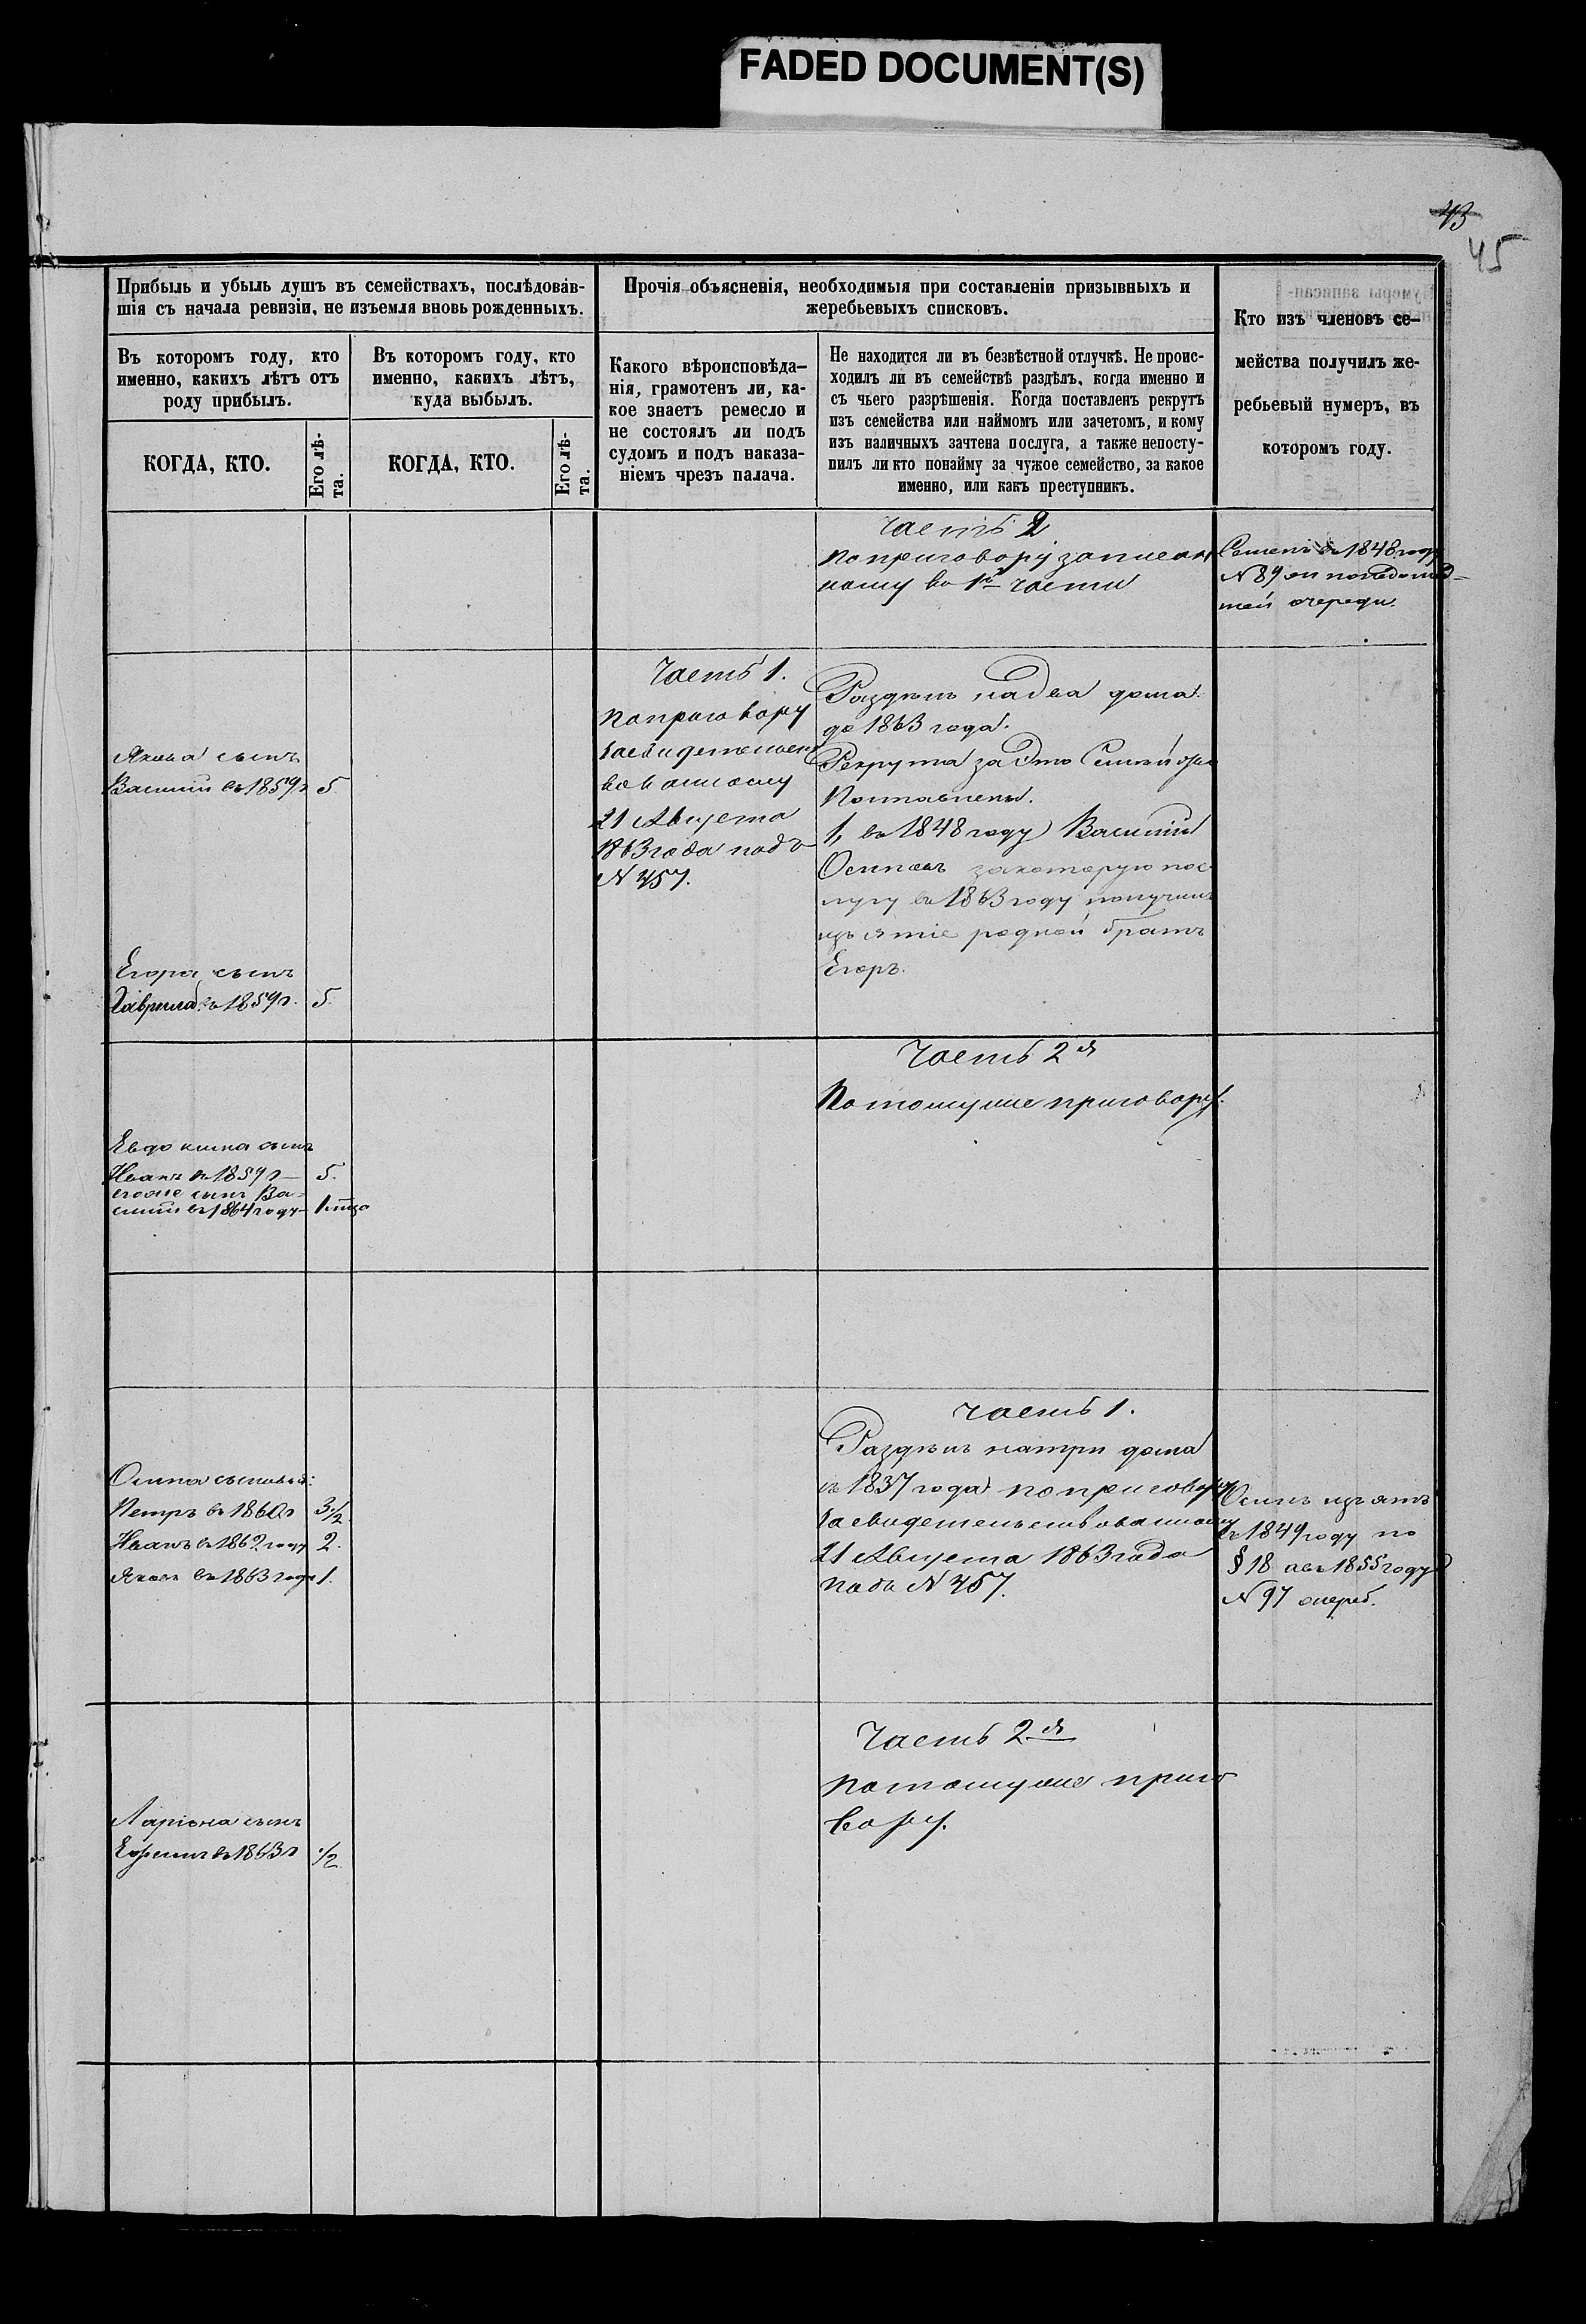 FADED DOCUMENT(S)
43
45
Прибыль и убыль душъ въ семействахъ, послѣдовав-
шія съ начала ревизіи, не изъемля вновь рожденныхъ.
Въ которомъ году, кто
именно, какихъ лѣтъ отъ
роду прибылъ.
КОГДА, КТО.
Его лѣ-
та.
Въ которомъ году, кто
именно, какихъ лѣтъ,
куда выбылъ.
КОГДА, КТО.
Его лѣ-
та.
Прочія объясненія, необходимыя при составленіи призывныхъ и
жеребьевыхъ списковъ.
Какого вѣроисповѣда-
нія, грамотенъ ли, ка-
кое знаетъ ремесло и
не состоялъ ли подъ
судомъ и подъ наказа-
ніемъ чрезъ палача.
Не находится ли въ безвѣстной отлучкѣ. Не проис-
ходилъ ли въ семействѣ раздѣлъ, когда именно и
съ чьего разрѣшенія. Когда поставленъ рекрутъ
изъ семейства или наймомъ или зачетомъ, и кому
изъ наличныхъ зачтена послуга, а также непосту-
пилъ ли кто понайму за чужое семейство, за какое
именно, или какъ преступникъ.
Кто изъ членовъ се-
мейства получилъ же-
ребьевый нумеръ, въ
которомъ году.
Часть 2
По приговору записан
ному во 1й части
Семенъ въ 1848 году
N 89
очереди.
Якова сынъ
Василий въ 1859 г 5.
Егора сынъ
Гаврила въ 1859 г. 5.
Часть 1.
По приговору
засвидетельст
вованному
21 Августа
1863 года подъ
N 457.
Раздѣлъ на два дома
до 1863 года.
Рекрута за это Семей
Поставлены.
1, въ 1848 году Василий
Осиповъ закоторую пос
лугу въ 1863 году получилъ
изъятіе родной братъ
Егоръ.
Часть 2я
Потомуже приговору.
Евдокима сынъ
Иванъ въ 1859 г 5.
егоже сынъ Ва-
силий въ 1864 году
Часть 1.
Раздѣлъ натри дома
съ 1837 года по приговору
засвидетельствованному
21 Августа 1863 года
подъ N 457.
Осипа сыновья:
Петръ въ 1860 г 3 1/2
Иванъ въ 1862 году 2.
Яковъ въ 1863 году 1.
Осипъ изъятъ
въ 1849 году по
§ 18 а въ 1855 году
N 97 очеред.
Часть 2я
потомуже приго
вору.
Ларіона сынъ
Ефимъ въ 1863 г 1/2